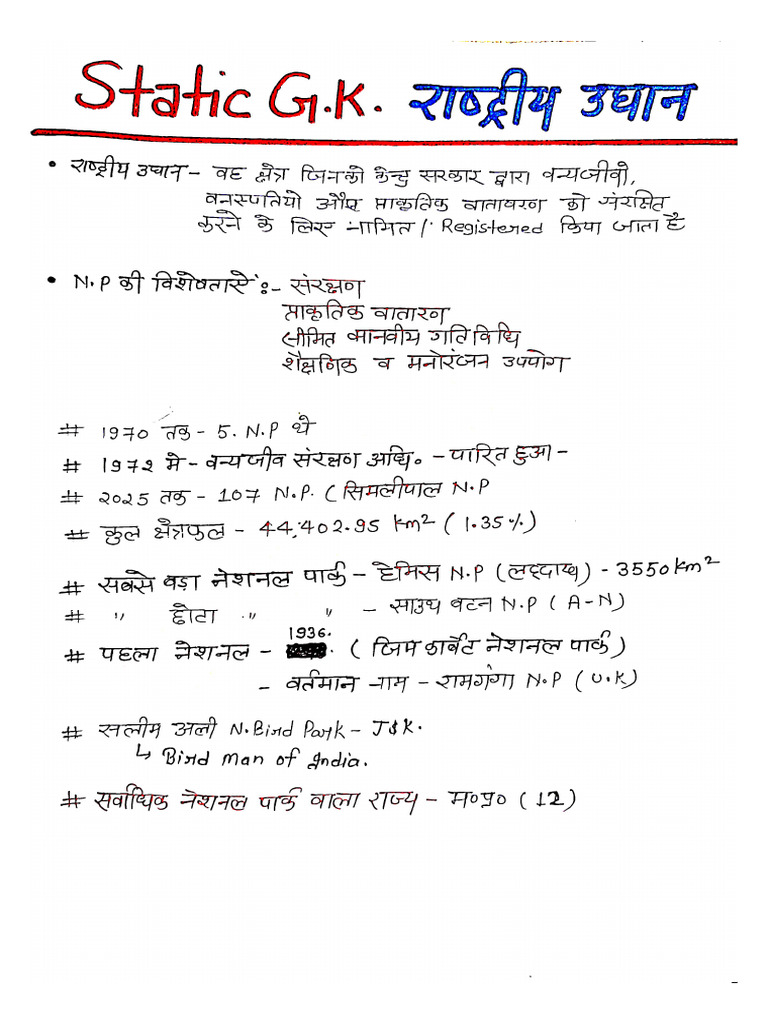 Static G.K. राष्ट्रीय उघान
• राष्ट्रीय उघान - वह क्षेत्र जिनको केन्द्र सरकार द्वारा वन्यजीवो,
वनस्पतियो और प्राकृतिक वातावरण को संरक्षित
करने के लिए नामित / Registered किया जाता है
• N.P की विशेषताऐं :- संरक्षण
प्राकृतिक वातारण
सीमित मानवीय गतिविधि
शैक्षणिक व मनोरंजन उपयोग
# 1970 तक - 5. N.P थे
# 1972 मे - वन्यजीव संरक्षण अधि० - पारित हुआ -
# 2025 तक - 107 N.P. ( सिमलीपाल N.P
# कुल क्षेत्रफल - 44,402.95 km² ( 1.35 %)
# सबसे बड़ा नेशनल पार्क - हेमिस N.P (लद्दाख) - 3550 km²
# " छोटा " " - साउथ बटन N.P ( A-N)
# पहला नेशनल - 1936. ( जिम कार्बेट नेशनल पार्क )
- वर्तमान नाम - रामगंगा N.P ( U.K)
# सलीम अली N. Bird Park - J&K.
↳ Bird man of India.
# सर्वाधिक नेशनल पार्क वाला राज्य - म०प्र० ( 12 )